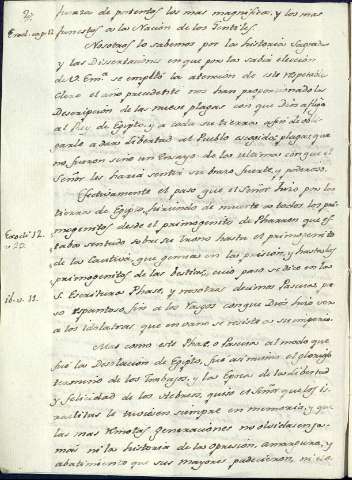 fuerza de portentos los mas magnificos, y los mas
Exod. cap. 12
funestos a la Nación de los Gentiles.
Nosotros lo sabemos por la historia Sagrada
y las Disertaciones en que por la sabia eleccion
de V. Emª se empleó la atencion de este respetable
Clero el año precedente nos han proporcionado la
Descripcion de las nueve plagas con que Dios afligió
al Rey de Egipto, y a toda su tierra a fin de obli-
garlo a dar libertad al Pueblo escogido, plagas que
no fueron sino un ensayo de los ultimos con que el
Señor les haria sentir su brazo fuerte, y poderoso.
Efectivamente el paso que el Señor hizo por las
tierras de Egipto, hiriendo de muerte a todos los pri-
mogenitos desde el primogenito de Pharaon que es-
Exodi 12.
v. 29.
taba sentado sobre su trono hasta el primogenito
de la Cautiva, que gemia en la prision, y hasta los
primogenitos de las bestias, cuio paso se dice en las
ib. v. 11.
S. Escrituras Phase, y nosotros decimos Pascua, pa-
so espantoso, fin a los rasgos con que Dios hizo ver
a los idolatras que en vano se resiste a su imperio.
Mas como este Phase, o Pascua al modo que
fué la Desolacion de Egipto, fue asi mismo el glorioso
termino de los trabajos, y la Epoca de la libertad
y felicidad de los Hebreos, quiso el Señor que los Is-
raelitas la tuviesen siempre en memoria, y que
las mas remotas generaciones no olvidasen ja-
más ni la historia de la opresion, amargura, y
abatimiento que sus mayores padecieron, ni la